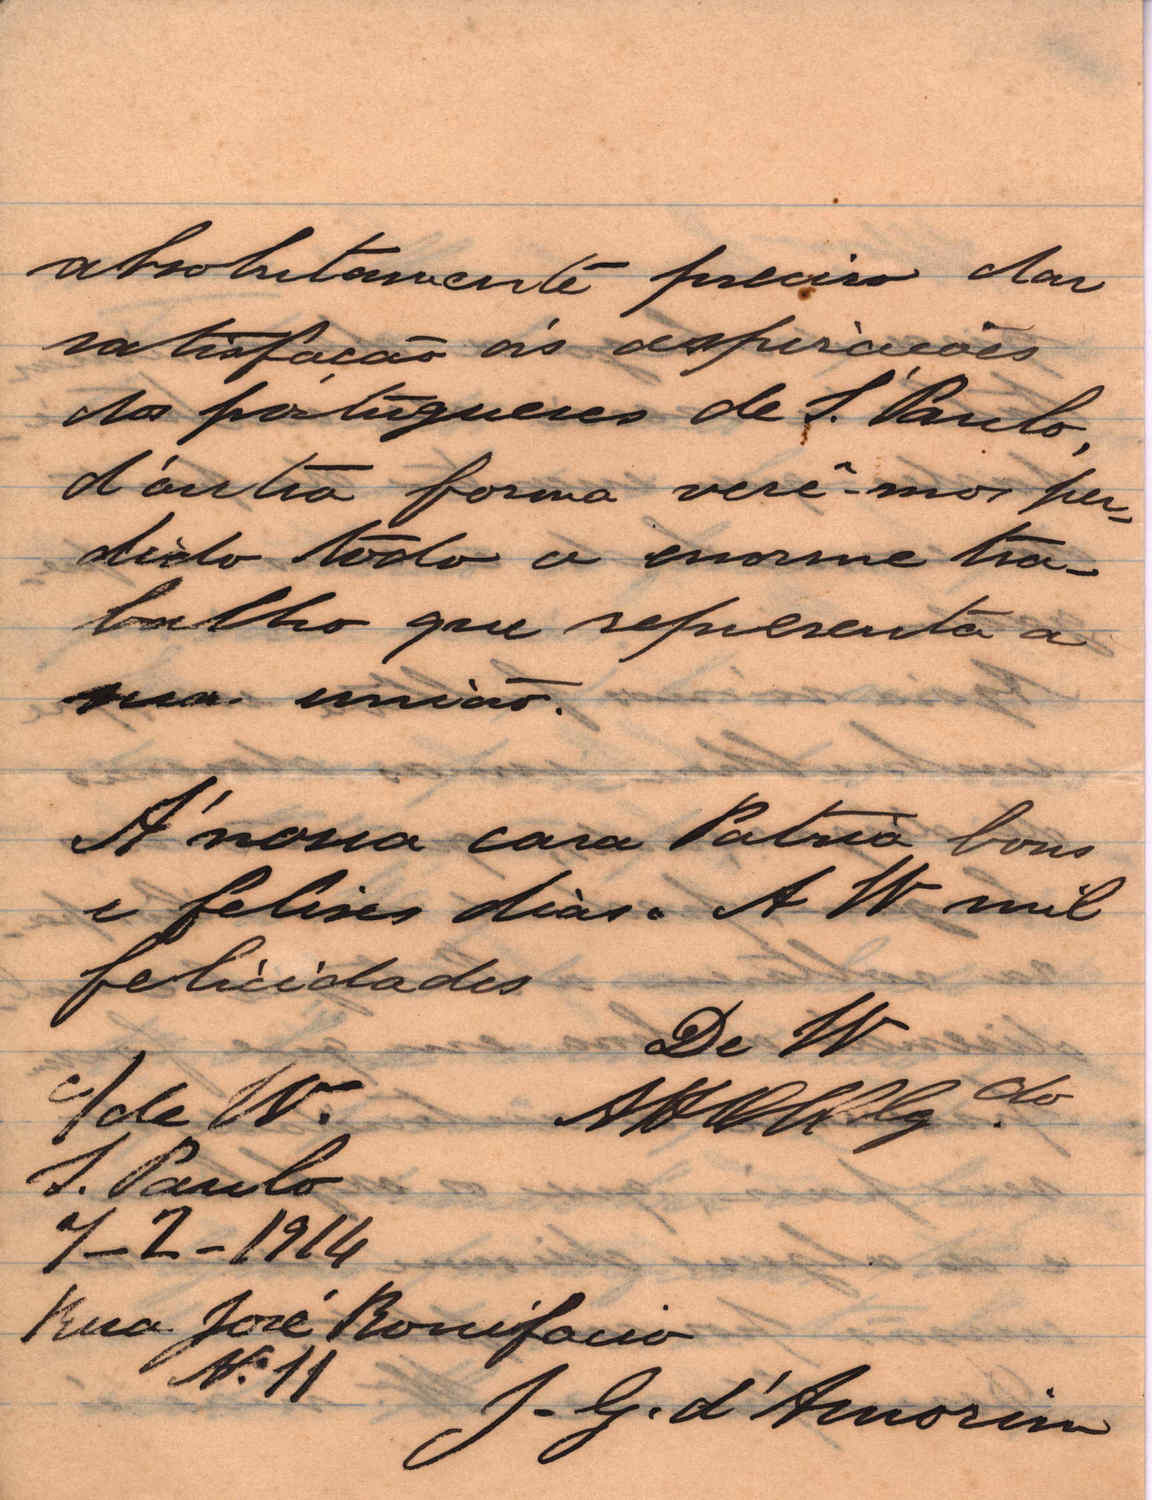 absolutamente preciso dar
satisfação ás aspirações
dos pórtugueses de S. Paulo,
d'óutra forma verê-mos per-
dido todo o enorme tra-
balho que representa a
sua união.
Á nossa cara Patria bons
e felises dias. A V. mil
felicidades
De V.
c/ de V.
S. Paulo
7-2-1914
Rua José Bonifacio
Nº 11
J. G. d'Amorim